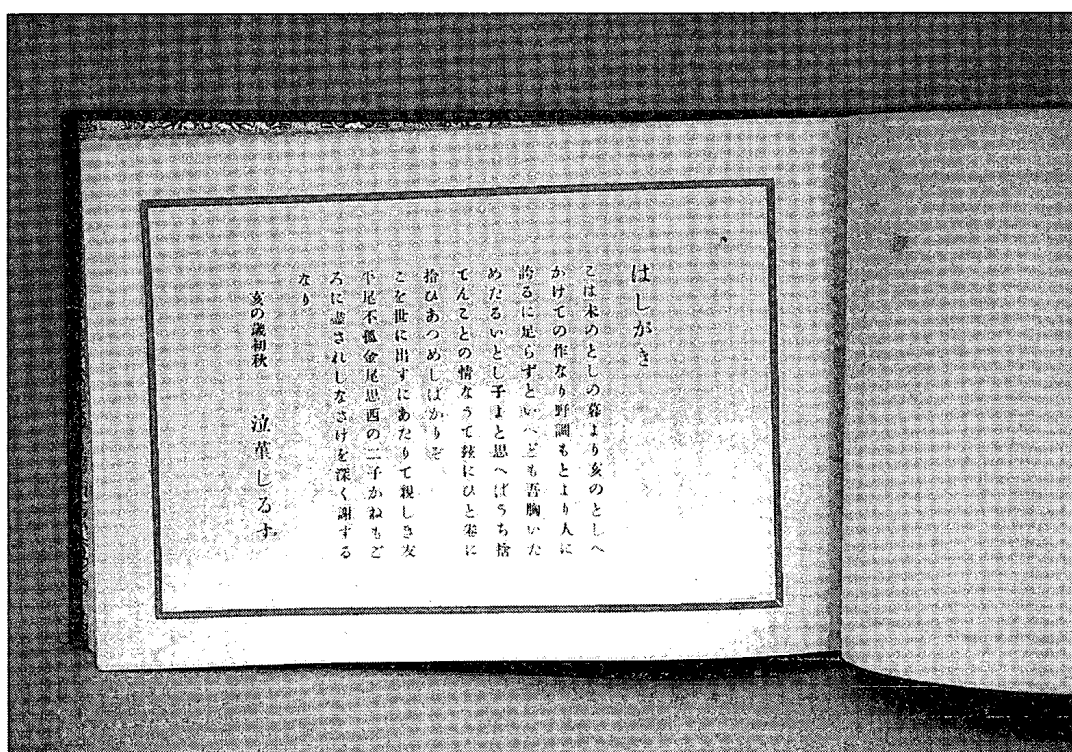 はしがき
こは未のとしの暮より亥のとしへ
かけての作なり野調もとより人に
誇るに足らずといへども吾胸いた
めたるいとし子よと思へばうち捨
てんことの情なうて玆にひと巻に
拾ひあつめしばかりぞ
こを世に出すにあたりて親しき友
平尾不孤金尾思西の二子かねもご
ろに盡されしなさけを深く謝する
なり
亥の歳初秋 泣菫しるす